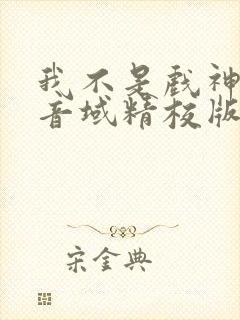 我不是戏神
音域精校版
宋金典